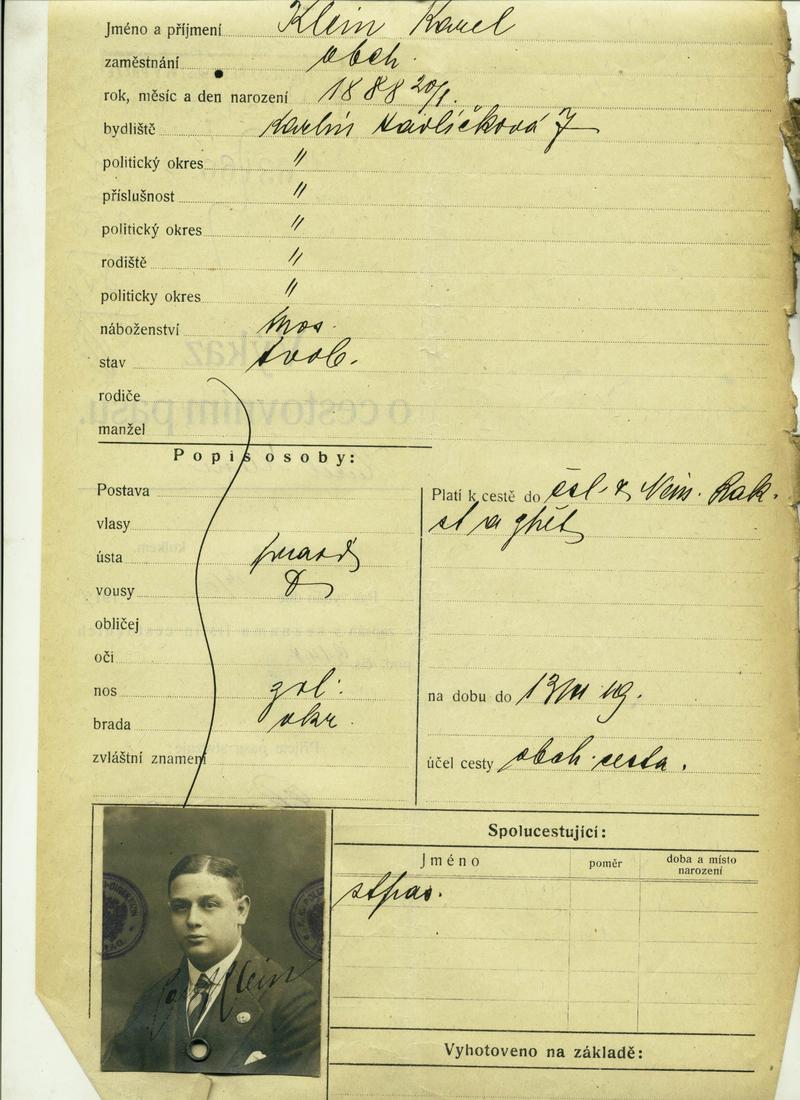 Jméno a příjmení Klein Karel
zaměstnání obch.
rok, měsíc a den narození 1888 20/1.
bydliště Karlín Havlíčkova 7
politický okres "
příslušnost "
politický okres "
rodiště "
politicky okres "
náboženství mos.
stav svob.
rodiče
manžel
Popis osoby:
Postava
vlasy
ústa
vousy
obličej
oči
nos
brada okr.
zvláštní znamení
Platí k cestě do čsl. Něm. Rak.
st a zpět
na dobu do
účel cesty obch. cesta.
Spolucestující:
Jméno poměr doba a místo narození
Karl Klein
Vyhotoveno na základě: